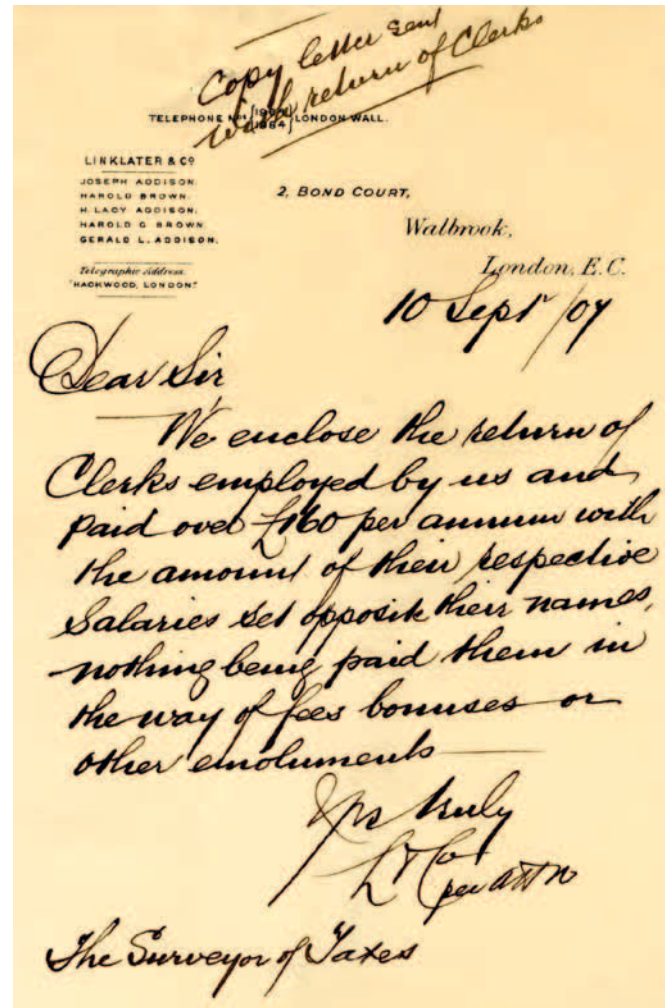 Copy letter sent
with return of Clerks
TELEPHONE Nos LONDON WALL.
LINKLATER & Co
JOSEPH ADDISON.
HAROLD BROWN.
H. LACY ADDISON.
HAROLD G BROWN.
GERALD L. ADDISON.
Telegraphic Address.
"HACKWOOD, LONDON."
2, BOND COURT,
Walbrook,
London, E.C.
10 Sept /07
Dear Sir
We enclose the return of
Clerks employed by us and
paid over £160 per annum with
the amount of their respective
Salaries set opposite their names,
nothing being paid them in
the way of fees bonuses or
other emoluments
Yrs truly
L & Co
per
The Surveyor of Taxes